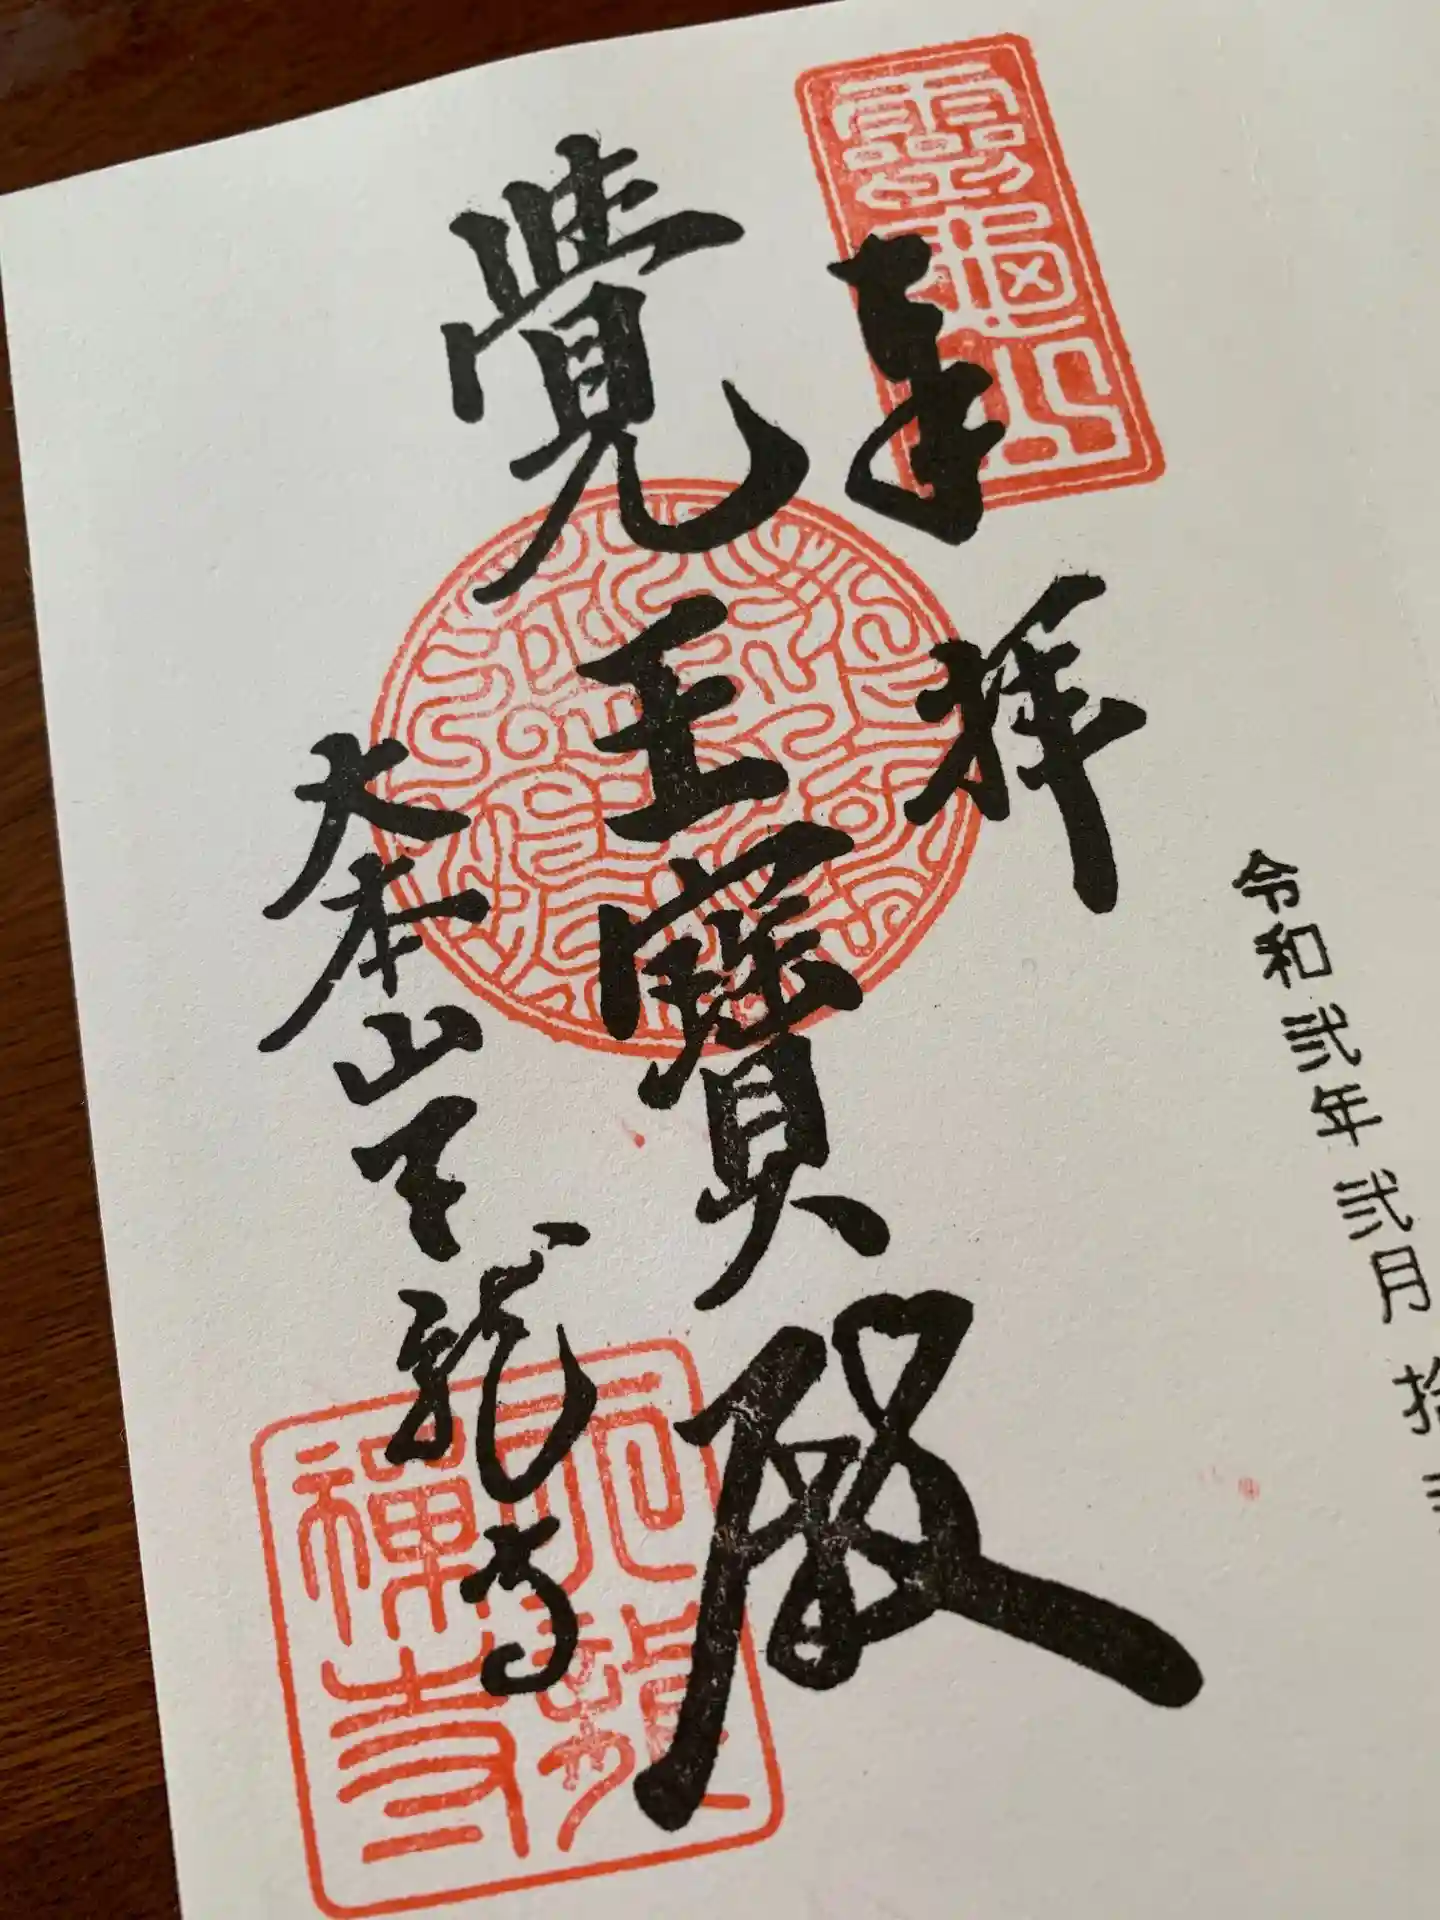 令和弐年弐月拾
奉拝
霊亀山
覺王寶殿
大本山天龍寺
天龍
禅寺